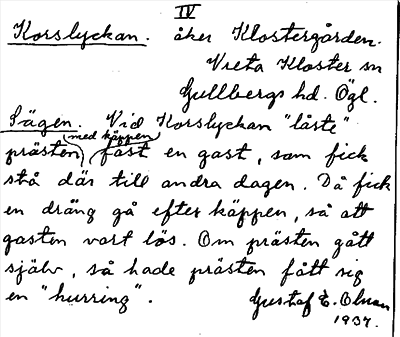 IV
Korslyckan. åker Klostergården.
Vreta Kloster sn
Gullbergs hd. Ögl.
Sägen. Vid Korslyckan "låste"
med käppen
prästen fast en gast, som fick
stå där till andra dagen. Då fick
en dräng gå efter käppen, så att
gasten vart lös. Om prästen gått
själv, så hade prästen fått sig
en "hurring".
Gustaf E. Olsson
1937.